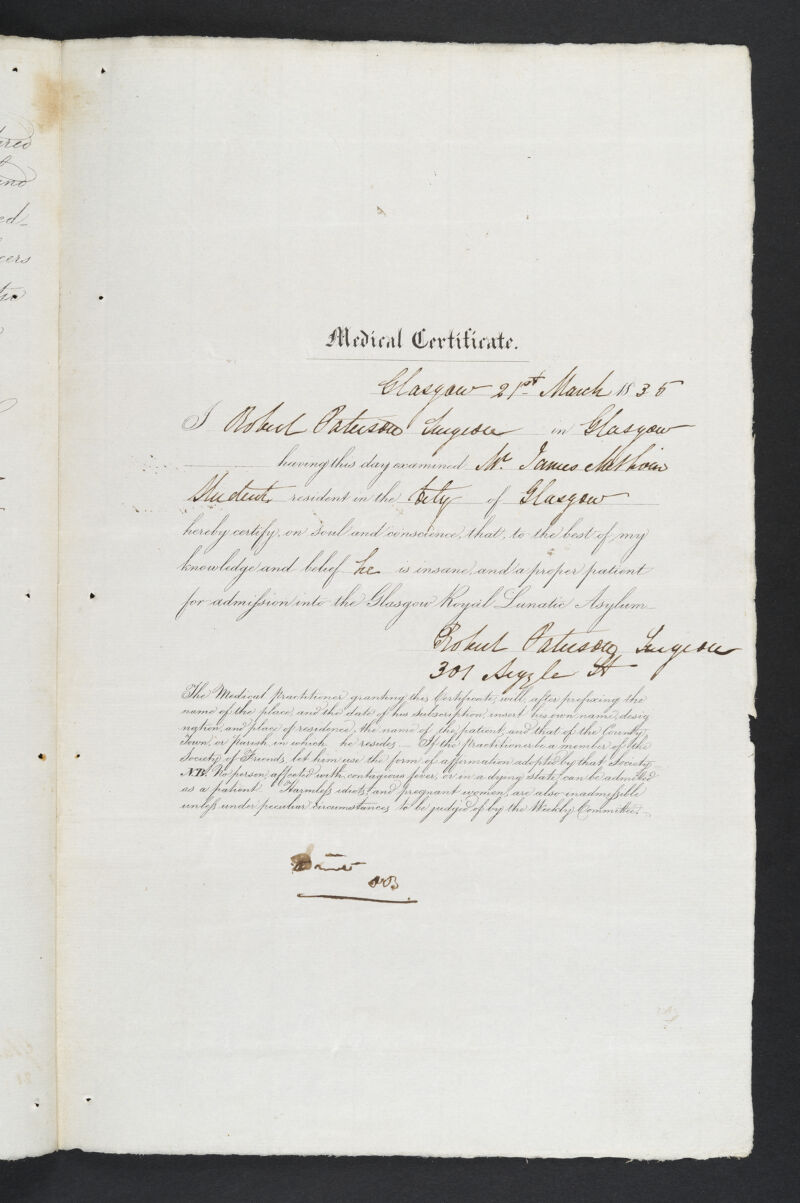 Medical Certificate.
Glasgow 21st March 1835
I Robert Paterson Surgeon in Glasgow
having this day examined Mr. James
Student resident in the City of Glasgow
hereby certify, on soul and conscience, that, to the best of my
knowledge and belief he is insane, and a proper patient
for admission into the Glasgow Royal Lunatic Asylum
Robert Paterson Surgeon
301 Argyle St
The Medical practitioner granting this Certificate, will, after prefixing the
name of the place, and the date of his subscription, insert his own name, desig
nation, and place of residence, the name of the patient, and that of the County,
Town, or Parish in which he resides — If the practitioner be a member of the
Society of Friends, let him use the form of affirmation adopted by that Society.
N.B. No person affected with contagious fever, or in a dying state, can be admitted
as a patient Harmless idiots, and pregnant women, are also inadmissible
unless under peculiar circumstances, to be judged of by the Weekly Committee.